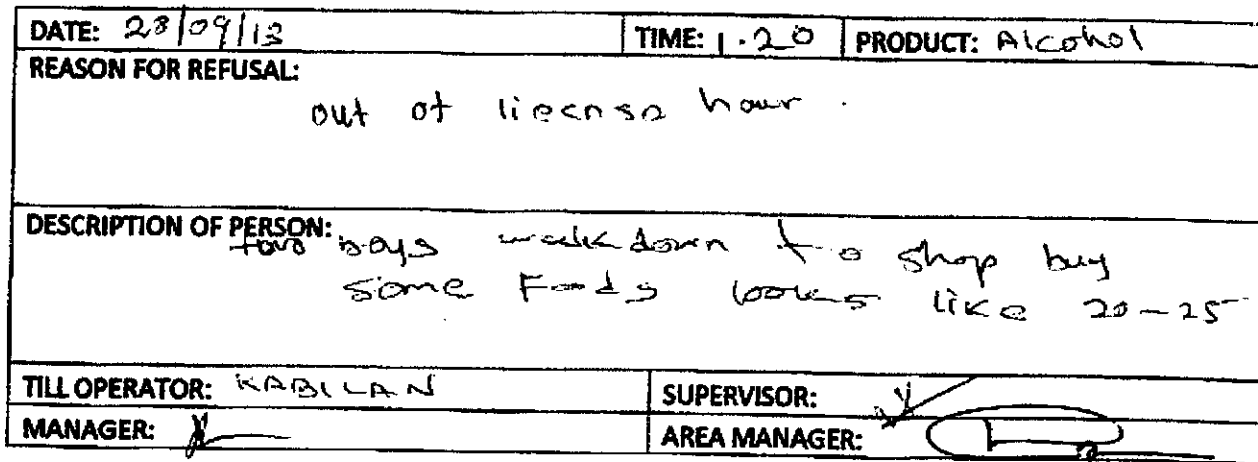 DATE: 28/09/13 TIME: 1.20 PRODUCT: Alcohol
REASON FOR REFUSAL:
out of license hour.
DESCRIPTION OF PERSON:
two boys walkdown to shop buy
some Foods looks like 20-25
TILL OPERATOR: KABILAN SUPERVISOR:
MANAGER: AREA MANAGER: